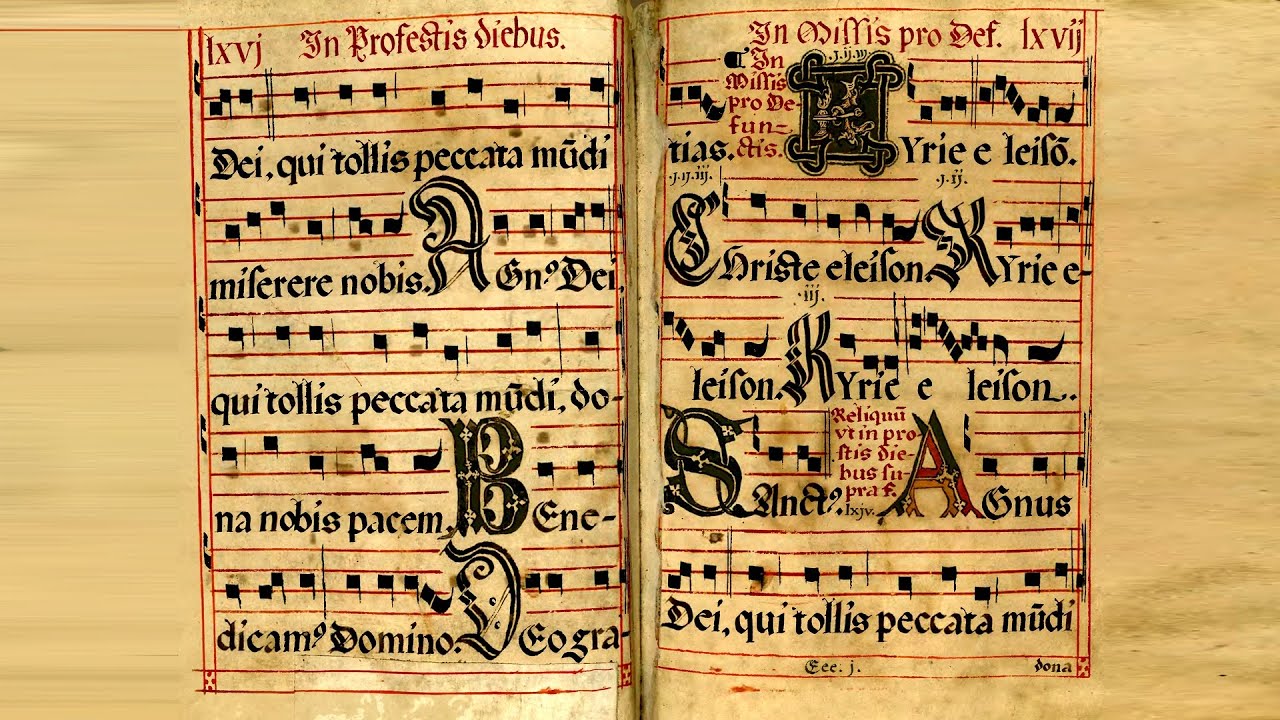 lxvj In Profestis diebus.
Dei, qui tollis peccata mũdi
miſerere nobis. AGn⁹ Dei,
qui tollis peccata mũdi, do-
na nobis pacem. BEne-
dicam⁹ Domino. DEo gra-
In Miſſis pro Def. lxvij
¶ In
Miſſis
pro De-
fun-
ctis.
.j.ij.iij.
tias. KYrie e leiſõ.
.j.ij.iij. .j.ij.
CHriste eleiſon. KYrie e-
.iij.
leiſon. KYrie e leiſon..
Reliquũ
vt in pro-
ſtis die-
bus ſu-
pra f.
lxjv.
SAnct⁹. AGnus
Dei, qui tollis peccata mũdi
Eee. j. dona